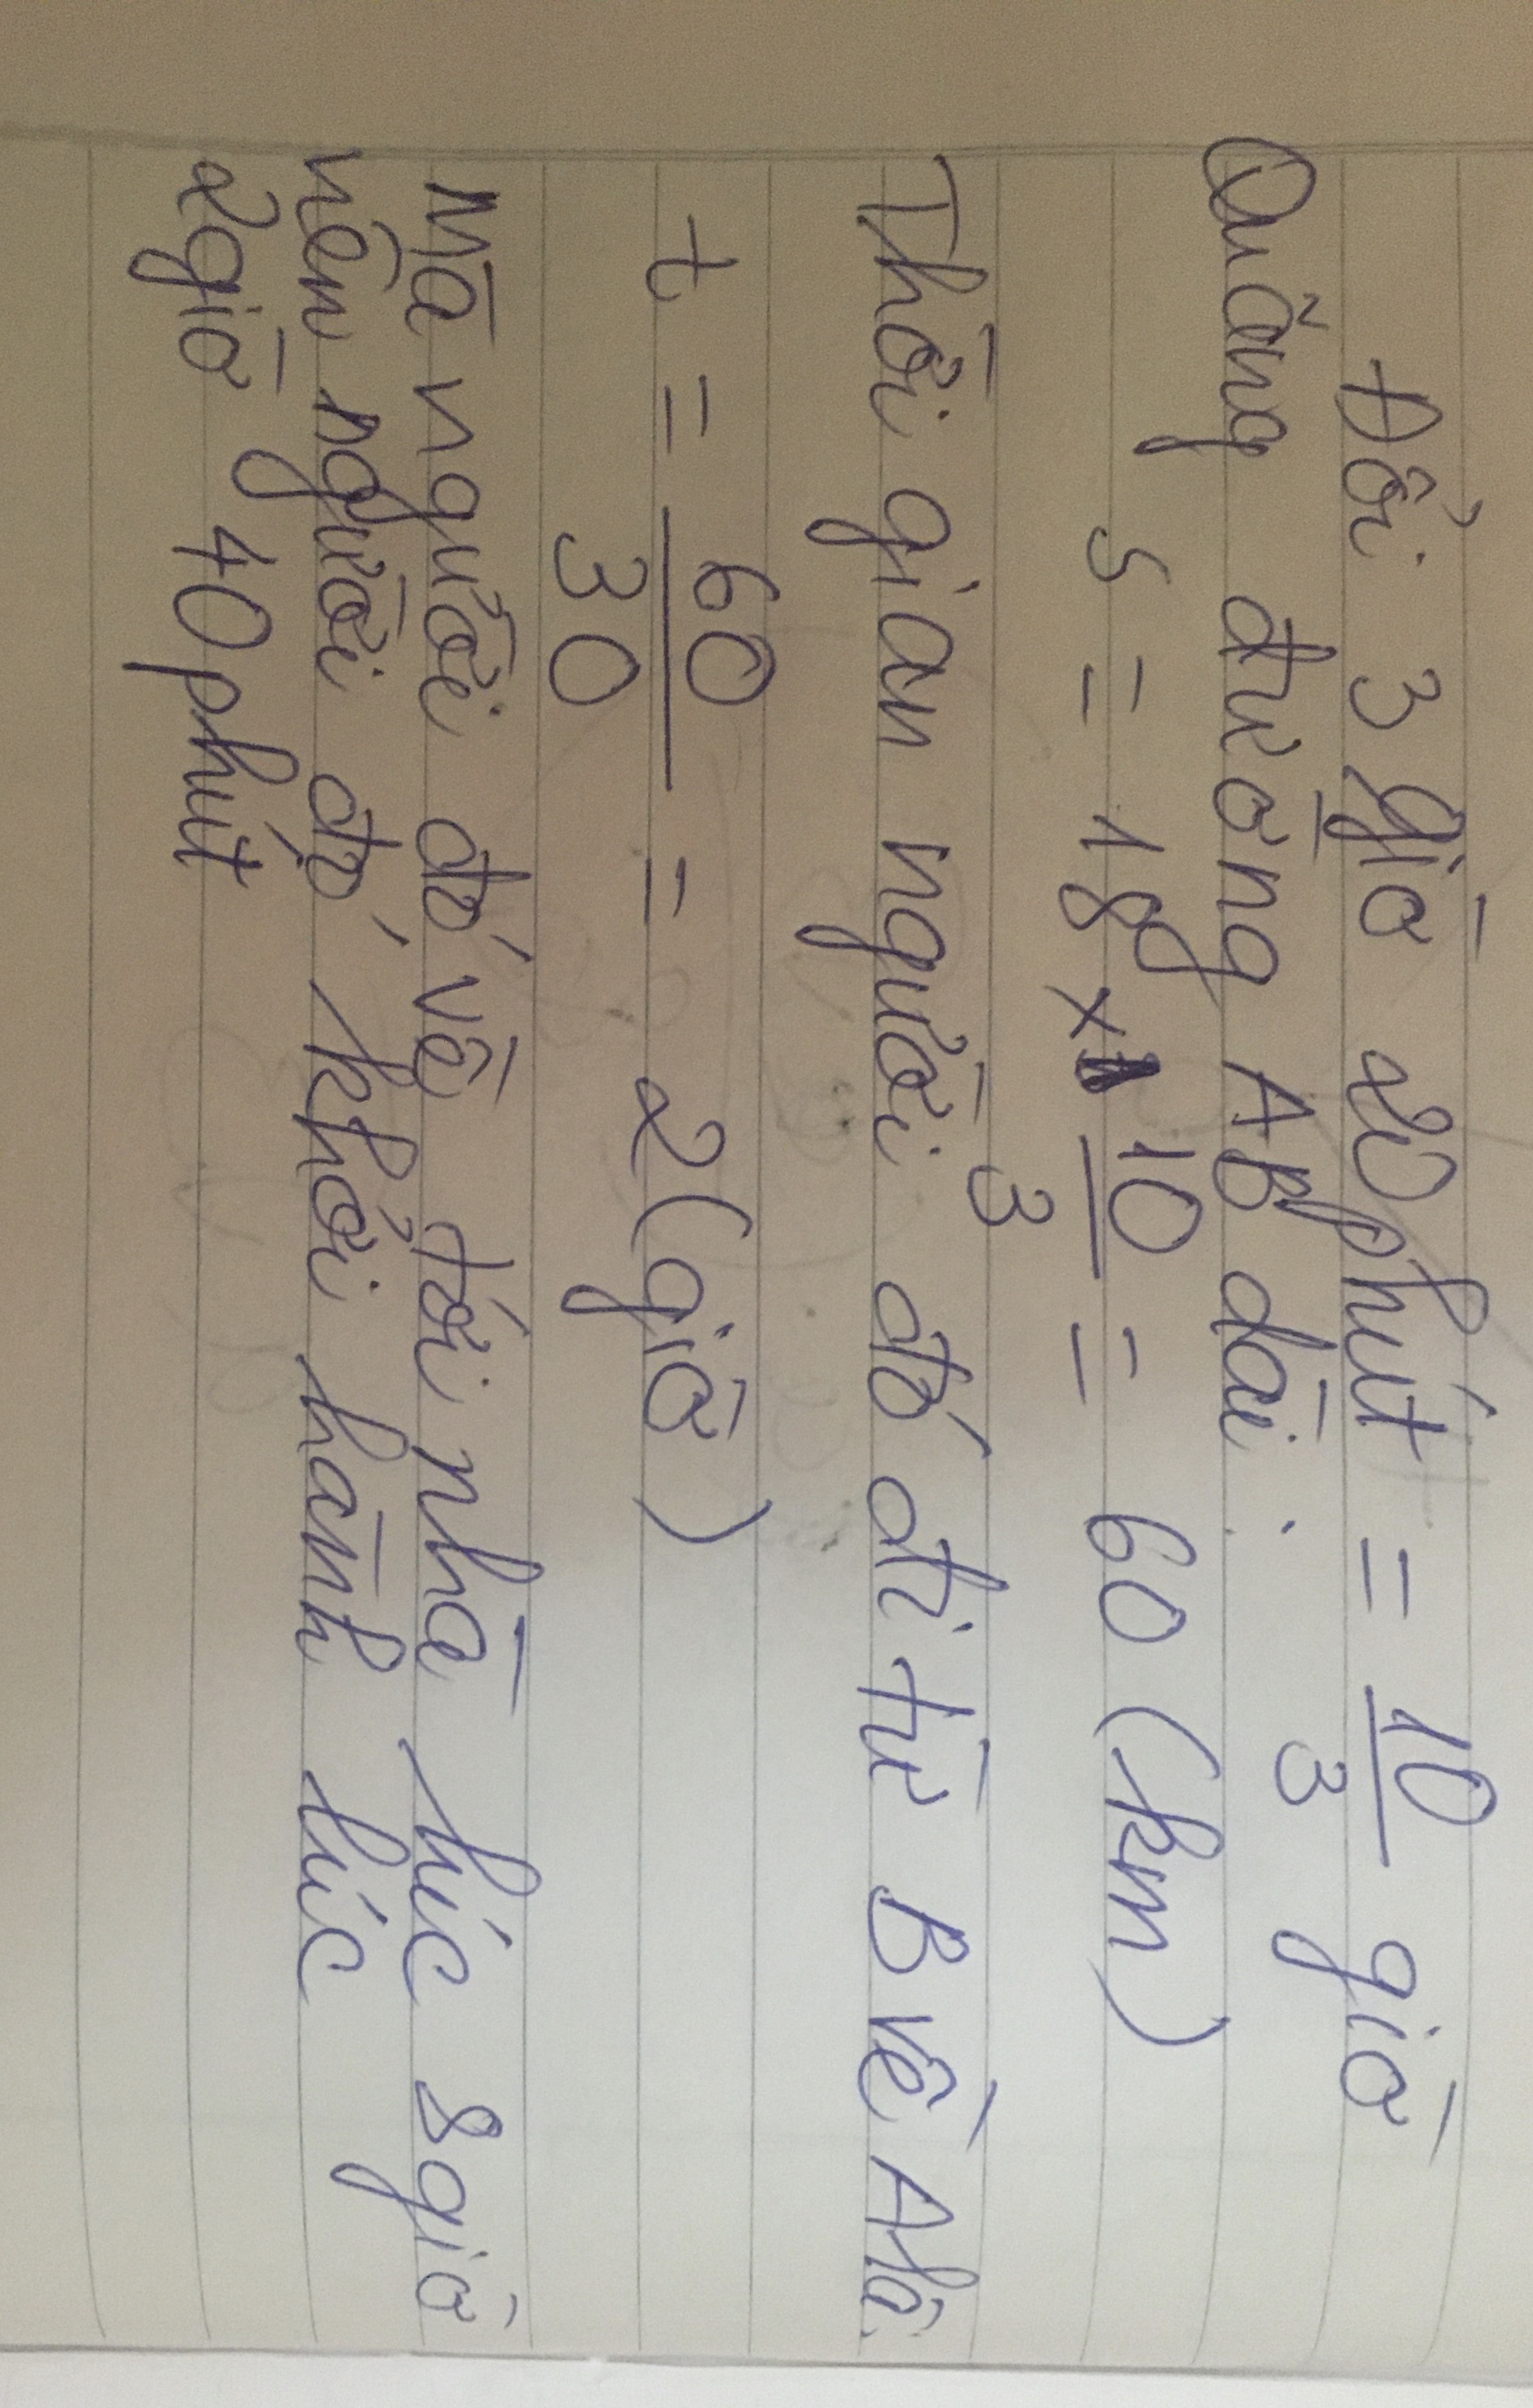 Đổi 3 giờ 20 phút = 10/3 giờ
Quãng đường AB dài:
S = 18 x 10/3 = 60 (km)
Thời gian người đó đi từ B về A là
t = 60/30 = 2 (giờ)
Mà người đó về tới nhà lúc 8 giờ
nên người đó khởi hành lúc
2 giờ 40 phút